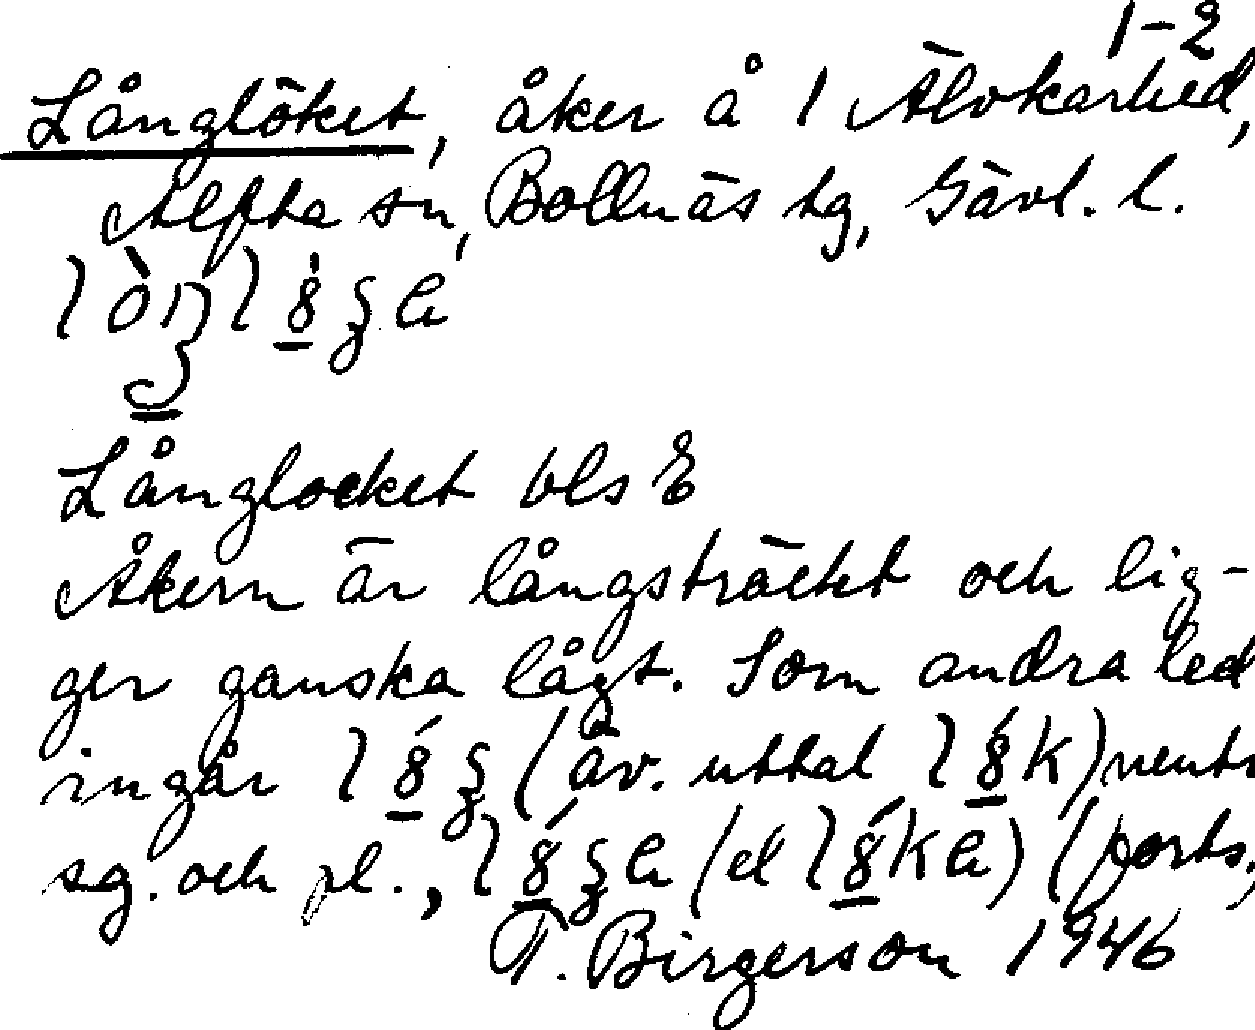 1-2
Långlöket, åker å 1 Älvkarhed,
Alfta sn, Bollnäs tg, Gävl. l.
Långlocket bls E
Åkern är långsträckt och lig-
ger ganska lågt. Som andra led
ingår (äv. uttal ) neutr
sg. och pl., (el ) (forts.
T. Birgerson 1946